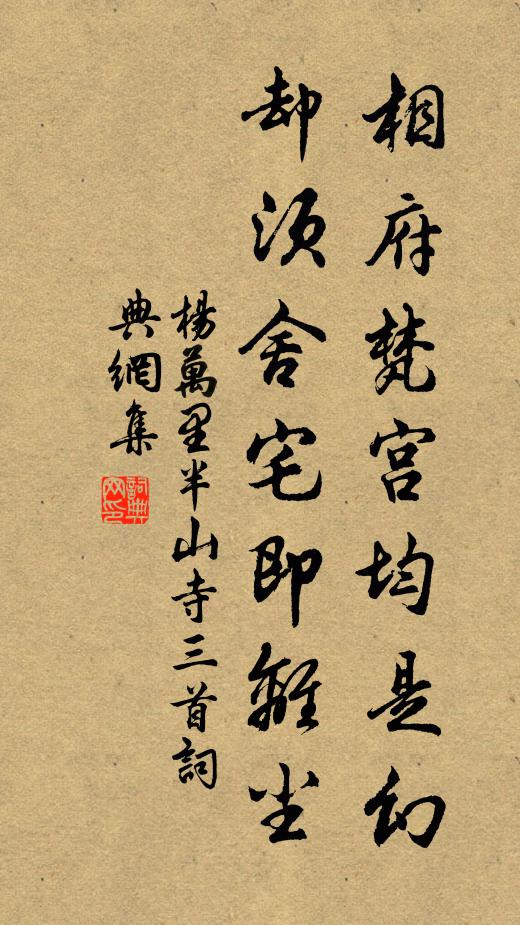 相府梵宫均是幻
却须舍宅即離尘
楊萬里半山寺三首詞
典網集
詞典网印